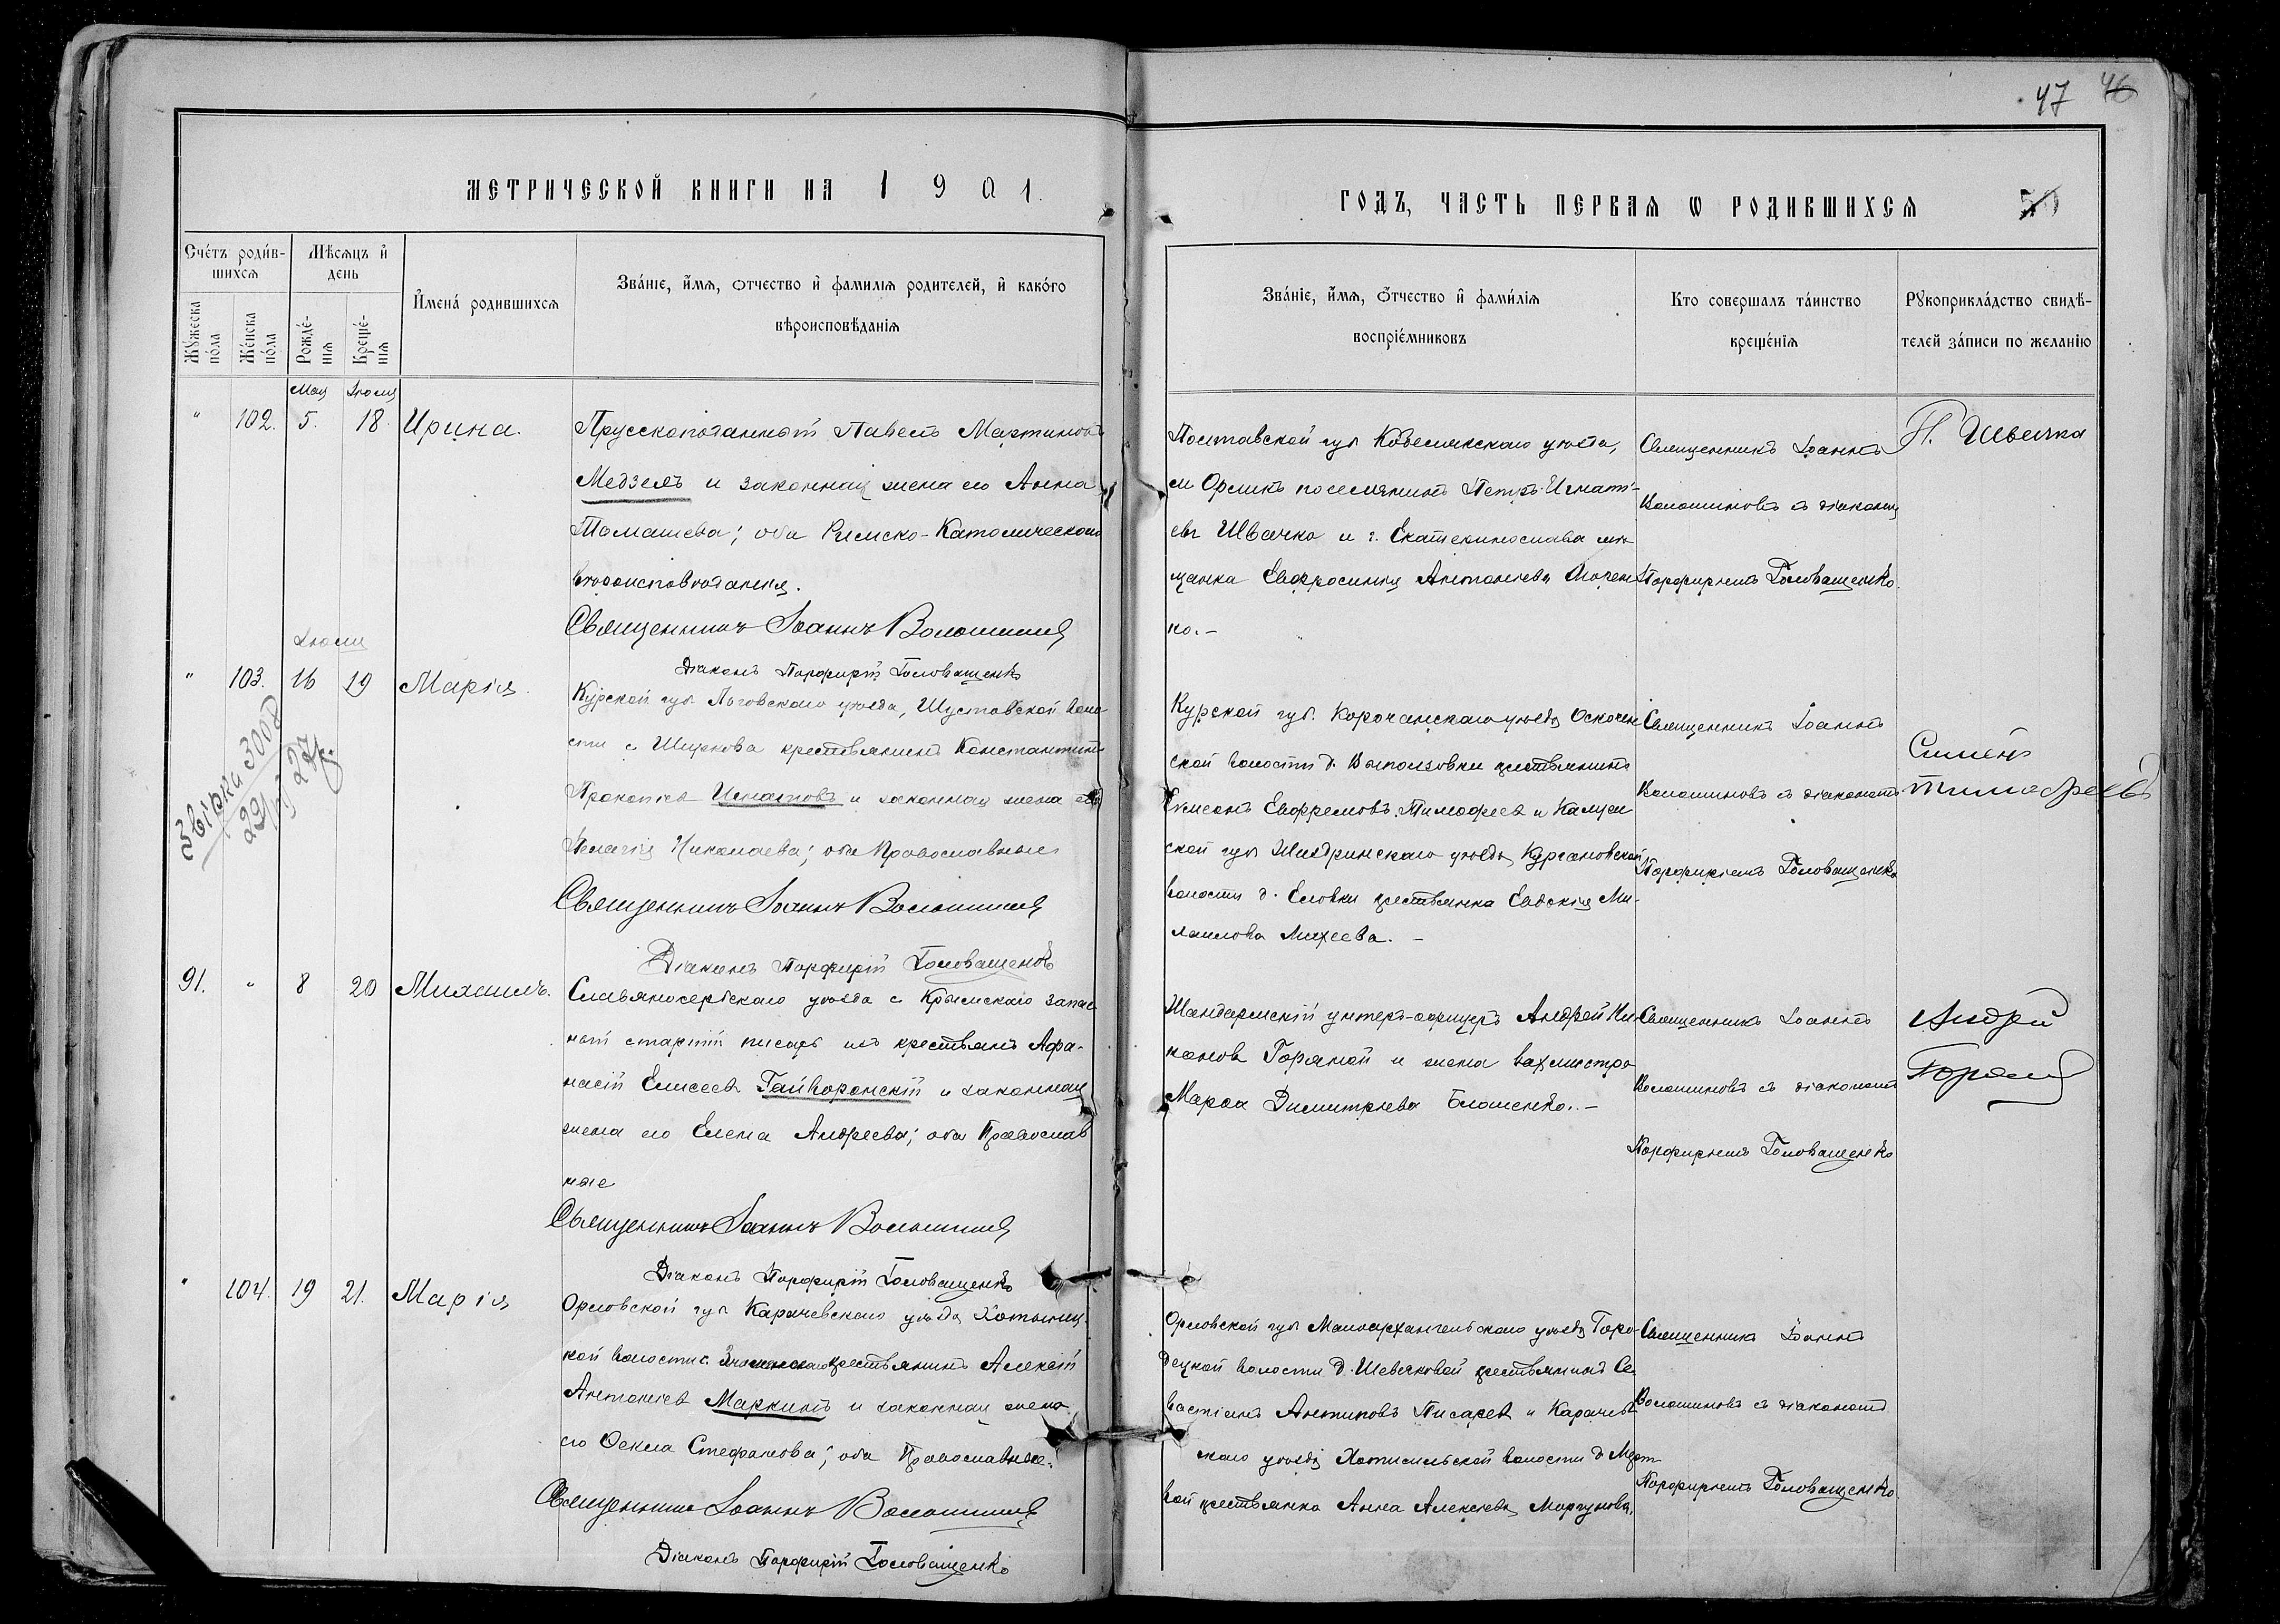 47 46
МЕТРИЧЕСКОЙ КНИГИ НА 1901.
ГОДЪ, ЧАСТЬ ПЕРВАЯ Ѡ РОДИВШИХСЯ
Счетъ родив-
шихся
Мужеска пола
Женска пола
Мѣсяцъ и
день
Рожде-
нія
Креще-
нія
Имена родившихся
Званіе, имя, отчество и фамилія родителей, и какого
вѣроисповѣданія
Званіе, имя, отчество и фамилія
воспріемниковъ
Кто совершалъ таинство
крещенія
Рукоприкладство свидѣ-
телей записи по желанію
Мая Іюля
" 102. 5. 18. Ирина.
Прусскоподанный Павелъ Мартиновъ
Медзель и законная жена его Анна
Томашева; оба Римско-Католическаго
вѣроисповѣданія.
Священникъ Іоаннъ Волошиновъ
Діаконъ Порфирій Головащенко
Полтавской губ Кобелякскаго уѣзда,
м Орликъ поселянинъ Петръ Игнаті-
евъ Швачка и г. Екатеринослава мѣ-
щанка Евфросинія Антоніева
ко.-
Священникъ Іоаннъ
Волошиновъ съ діакономъ
Порфиріемъ Головащенко.
П. Швачка
Іюля
" 103. 16 19 Марія.
Курской губ Льговскаго уѣзда, Шустовской воло
сти с Ширкова крестьянинъ Константинъ
Прокопіевъ Игнатовъ и законная жена его
Пелагія Николаева; оба Православные
Священникъ Іоаннъ Волошиновъ
Діаконъ Порфирій Головащенко
Звірка 3000
Курской губ. Корочанскаго уѣзда
ской волости д. Выползовки крестьянинъ
Симеонъ Евфремовъ Тимофеевъ и Калуж
ской губ Жиздринскаго уѣзда Курсановской
волости д. Еловки крестьянка Евдокія Ми-
хаилова Михеева. -
Священникъ Іоаннъ
Волошиновъ съ діакономъ
Порфиріемъ Головащенко
Симеонъ
Тимофеевъ
91. " 8 20 Михаилъ.
Славяносербскаго уѣзда с Крымскаго запас
ный старшій писарь изъ крестьянъ Афа-
насій Елисеевъ Гайворонскій и законная
жена его Елена Андреева; оба Православ
ные
Священникъ Іоаннъ Волошиновъ
Діаконъ Порфирій Головащенко
Жандармскій унтеръ-офицеръ Андрей Ни-
коновъ Горяной и жена вахмистра
Марѳа Димитріева Блошенко. -
Священникъ Іоаннъ
Волошиновъ съ діакономъ
Порфиріемъ Головащенко
Андрей
Горяной
" 104. 19 21. Марія
Орловской губ Карачевскаго уѣзда Хотынец
кой волости с. крестьянинъ Алексій
Антоніевъ Маркинъ и законная жена
его Ѳекла Стефанова; оба Православные.
Священникъ Іоаннъ Волошиновъ
Діаконъ Порфирій Головащенко
Орловской губ Малоархангельскаго уѣзда Горо-
децкой волости д. Шевяковой крестьянинъ Се-
вастіанъ Антиповъ Писаревъ и Карачев
скаго уѣзда волости д
вой крестьянка Анна Алексіева Моргунова.
Священникъ Іоаннъ
Волошиновъ съ діакономъ
Порфиріемъ Головащенко.